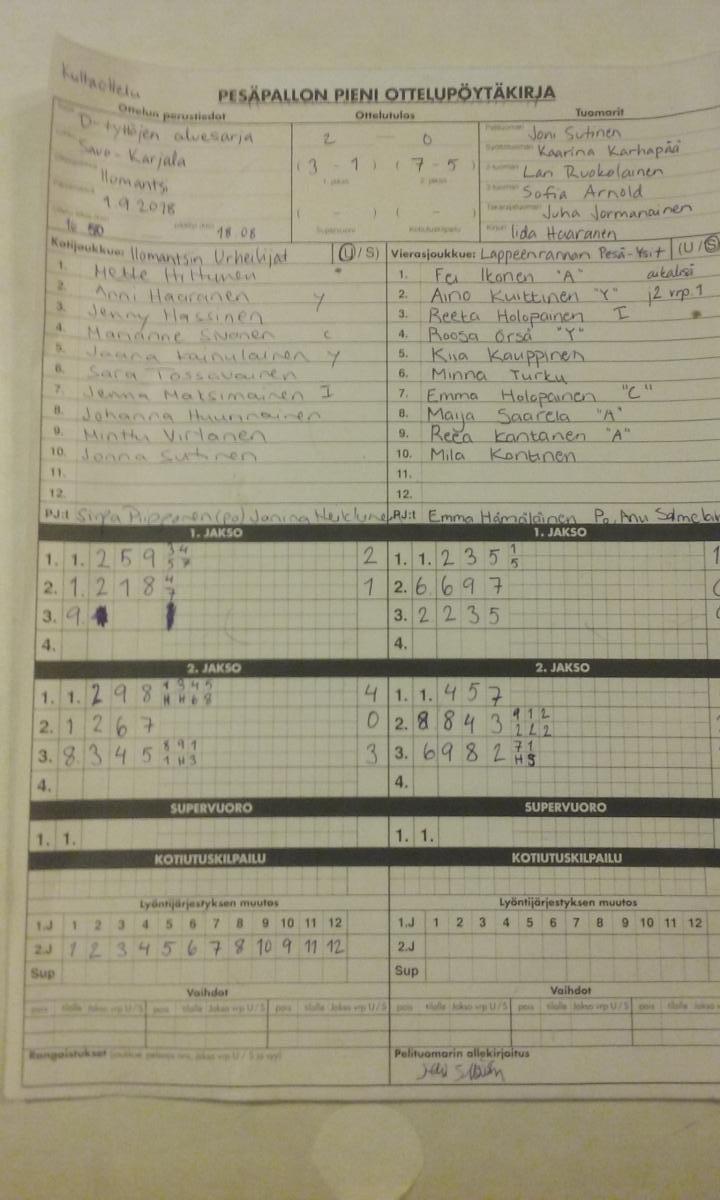 Kultaottelu
PESÄPALLON PIENI OTTELUPÖYTÄKIRJA
Ottelun perustiedot Ottelutulos Tuomarit
D-tyttöjen aluesarja
Savo-Karjala
Ilomantsi
1.9.2018
18 08
2 — 0
(3 - 1) (7 - 5)
1. jakso 2. jakso
( - ) ( - )
Supervuoro Kotiutuskilpailu
Joni Sutinen
Kaarina Karhapää
Lari Ruokolainen
Sofia Arnold
Juha Jormanainen
Iida Haaranen
Kotijoukkue: Ilomantsin Urheilijat (U/S)
1. Mette Hiltunen
2. Anni Haaranen y
3. Jenny Hassinen
4. Marianne Sivonen c
5. Jaana Kainulainen y
6. Sara Tossavainen
7. Jenna Maksimainen I
8. Johanna Huurinainen
9. Minttu Virtanen
10. Jonna Sutinen
11.
12.
PJ:t Sirpa Piipponen (po) Janina
Vierasjoukkue: Lappeenrannan Pesä-Ysit (U/S)
1. Ikonen "A" aikalisä
2. Aino Kuittinen "Y" j2 vrp.1
3. Reeta Holopainen I
4. Roosa Örså "Y"
5. Kiia Kauppinen
6. Minna Turku
7. Emma Holopainen "C"
8. Maija Saarela "A"
9. Reea Kantanen "A"
10. Mila Kontinen
11.
12.
PJ:t Emma Hämäläinen Po, Anu
1. JAKSO
1. 1. 2 5 9 3 4 5 7 2
2. 1. 2 1 8 4 7 1
3. 9.
4.
1. JAKSO
1. 1. 2 3 5 1 5 1
2. 6 6 9 7
3. 2 2 3 5
4.
2. JAKSO
1. 1. 2 9 8 1 3 4 5 H H 6 8 4
2. 1 2 6 7 0
3. 8 3 4 5 8 9 1 1 H 3 3
4.
2. JAKSO
1. 1. 4 5 7
2. 8 8 4 3 9 1 2 2 2 2
3. 6 9 8 2 7 1 H 5
4.
SUPERVUORO
1. 1.
SUPERVUORO
1. 1.
KOTIUTUSKILPAILU
KOTIUTUSKILPAILU
Lyöntijärjestyksen muutos
1.J 1 2 3 4 5 6 7 8 9 10 11 12
2.J 1 2 3 4 5 6 7 8 10 9 11 12
Sup
Lyöntijärjestyksen muutos
1.J 1 2 3 4 5 6 7 8 9 10 11 12
2.J
Sup
Vaihdot
pois tilalle Jakso vrp U/S pois tilalle Jakso vrp U/S pois tilalle Jakso vrp U/S
Vaihdot
pois tilalle Jakso vrp U/S pois tilalle Jakso vrp U/S pois
Rangaistukset
Pelituomarin allekirjoitus